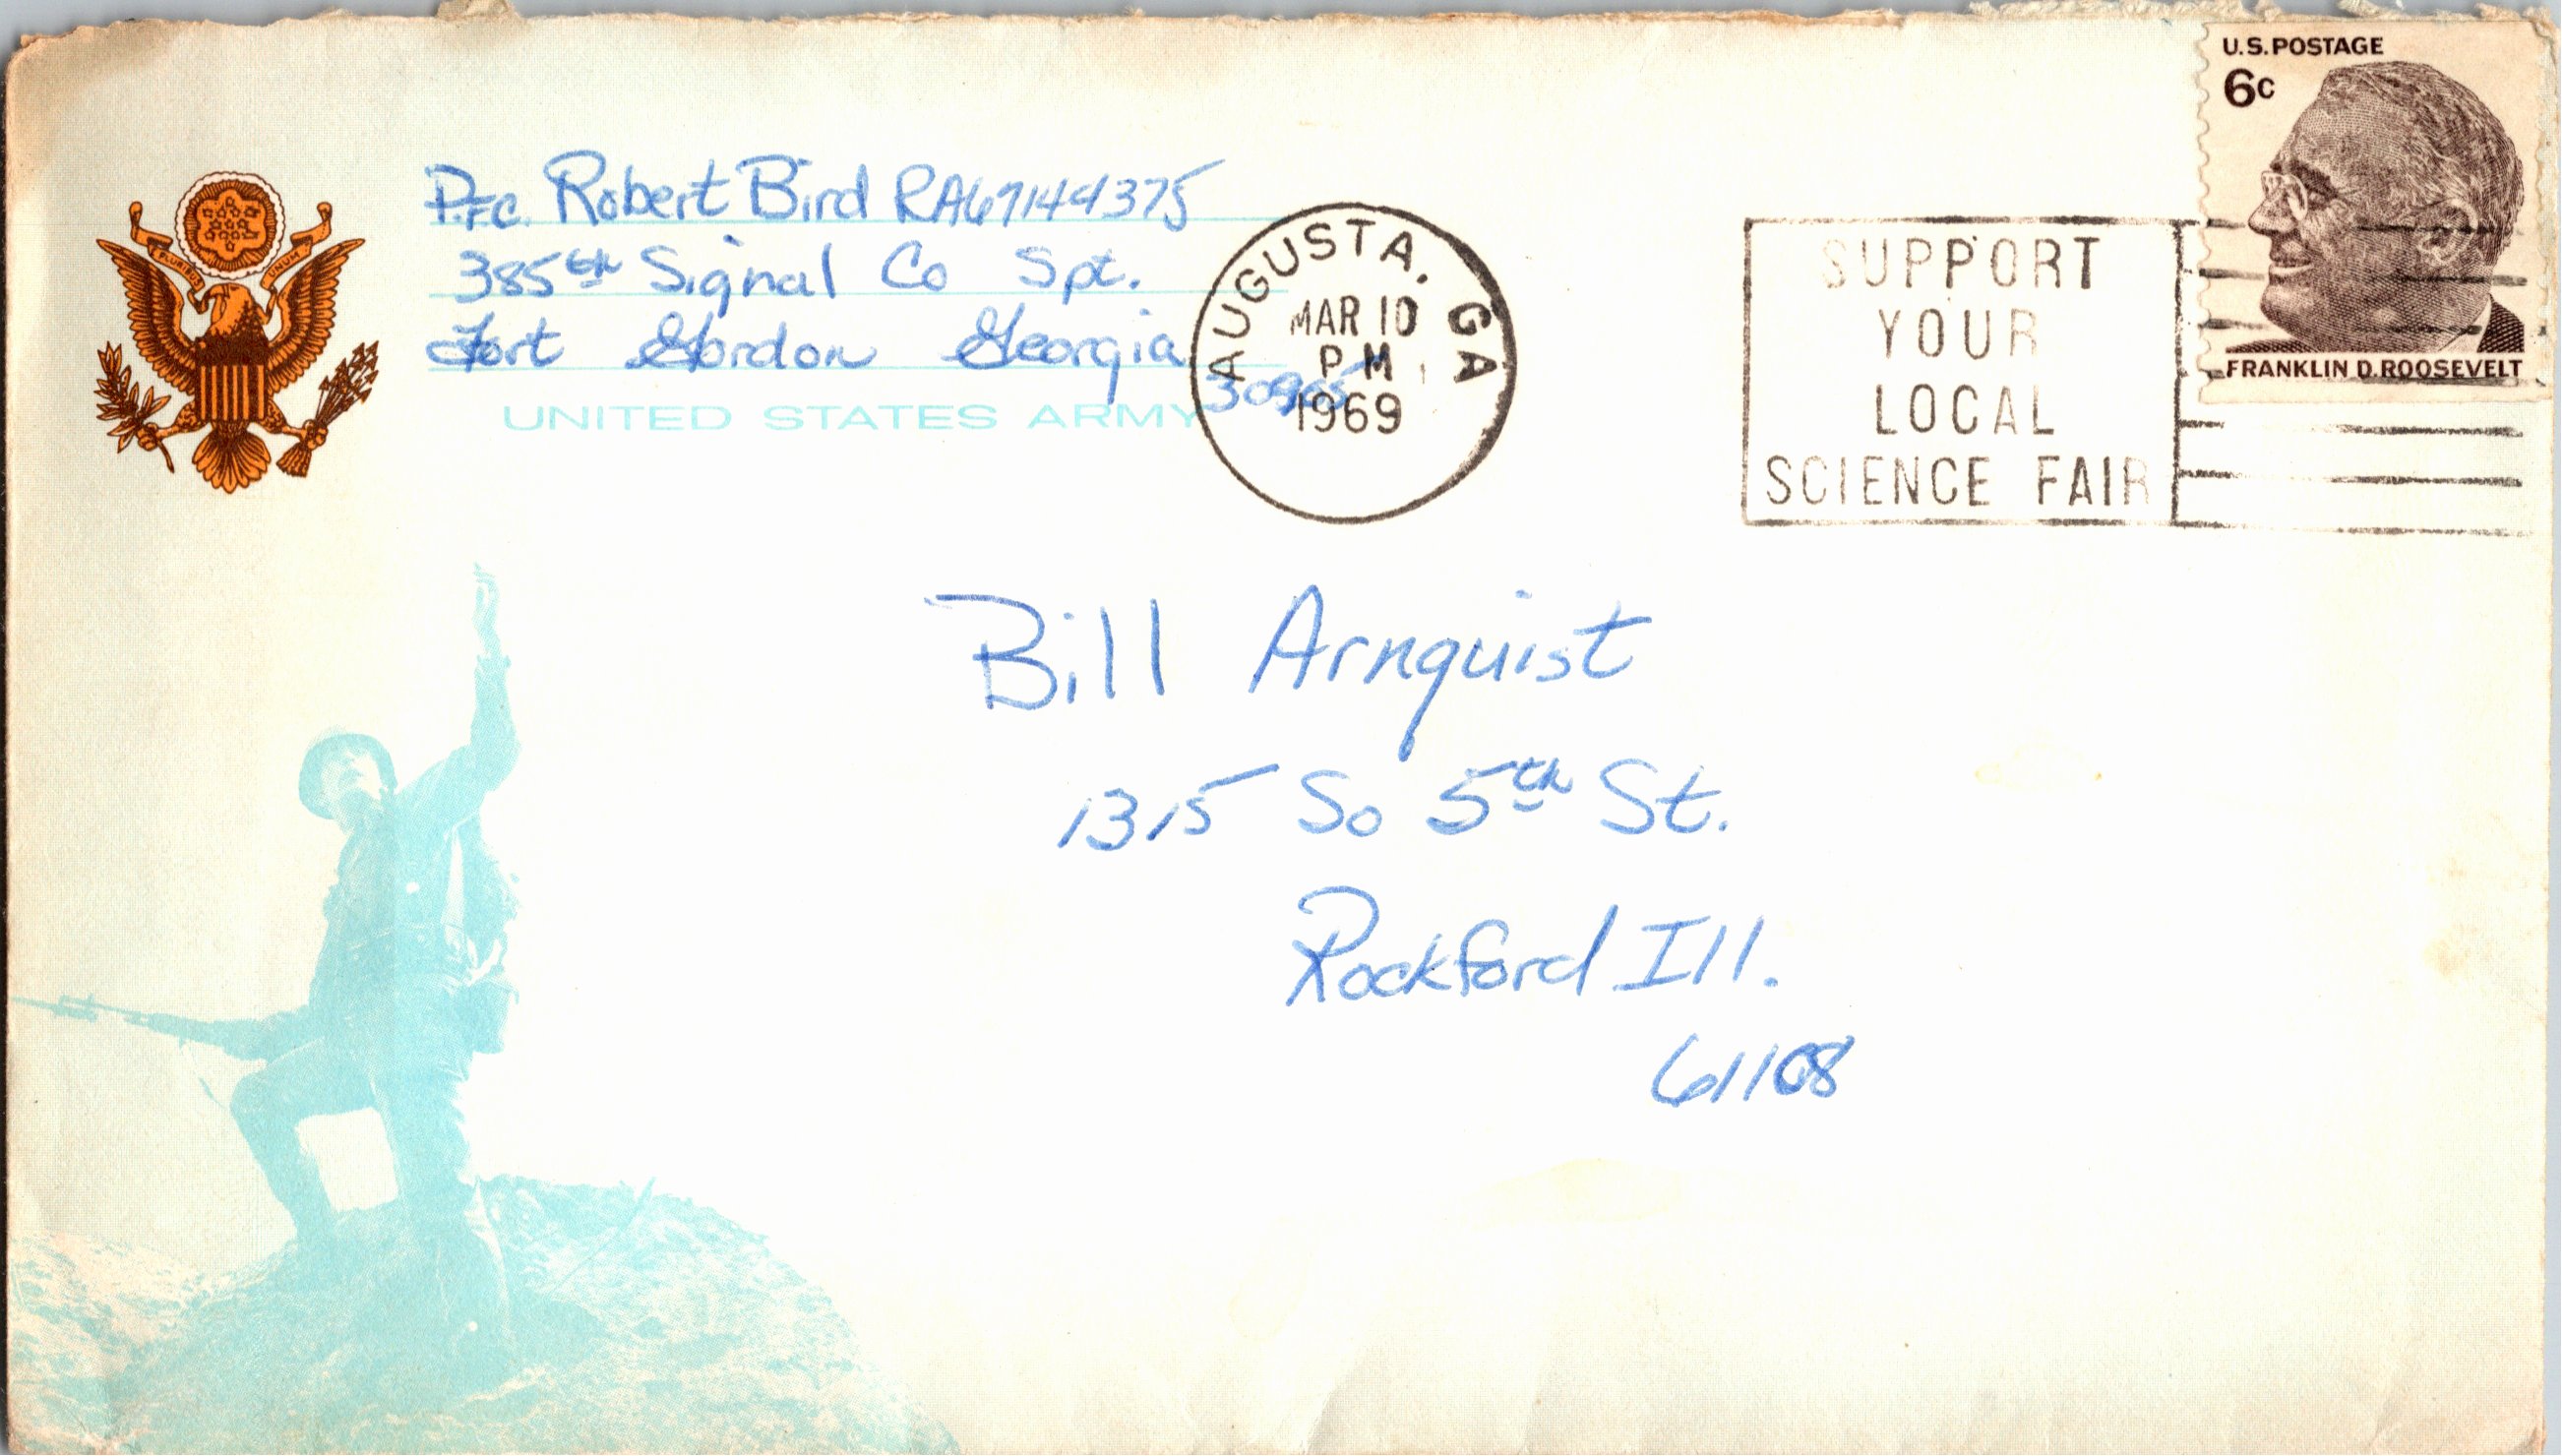 U.S. POSTAGE
6c
FRANKLIN D. ROOSEVELT
Pfc. Robert Bird RA67144375
385th Signal Co Spt.
Fort Gordon Georgia
30905
UNITED STATES ARMY
AUGUSTA, GA
MAR 10
PM
1969
SUPPORT
YOUR
LOCAL
SCIENCE FAIR
Bill Arnquist
1315 So 5th St.
Rockford Ill.
61108